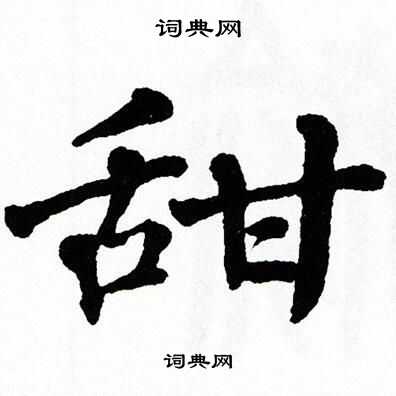 词典网
甜
词典网